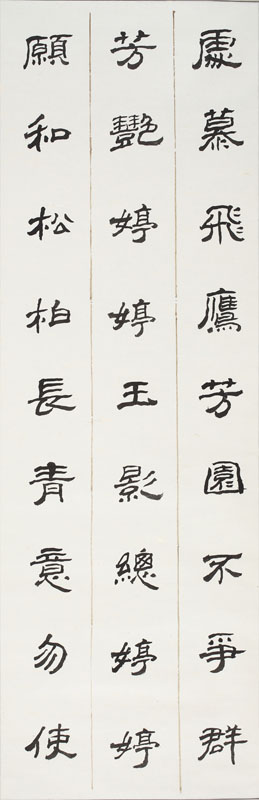 處慕飛鷹芳園不爭群
芳艷婷婷玉影總婷婷
願和松柏長青意勿使